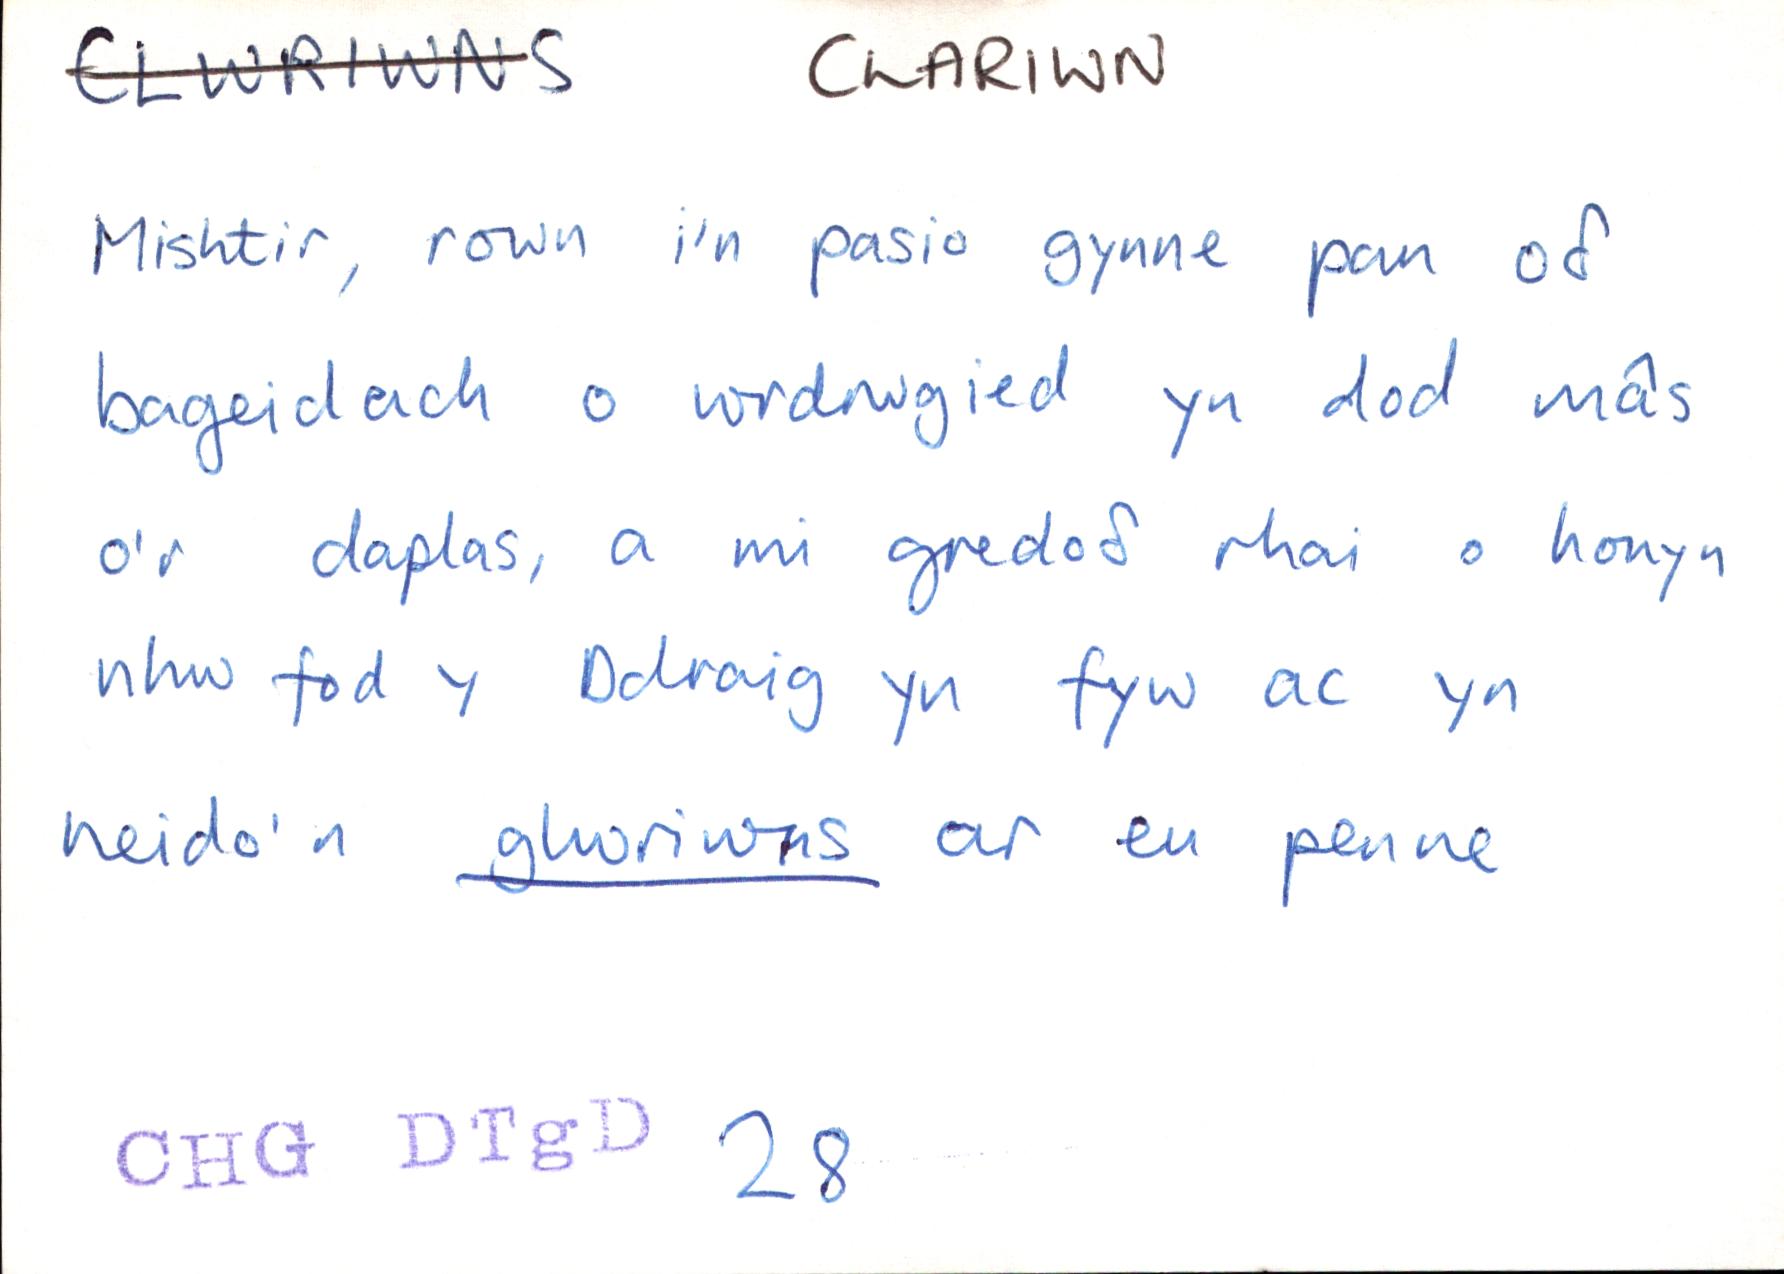 CLWRIWNS CLARIWN
Mishtir, rown i'n pasio gynne pan oδ
bageidach o wrdrwgied yn dod mâs
o'r daplas, a mi gredoδ rhai o honyn
nhw fod y Ddraig yn fyw ac yn
neido'n glwriwns ar eu penne
CHG DTgD 28